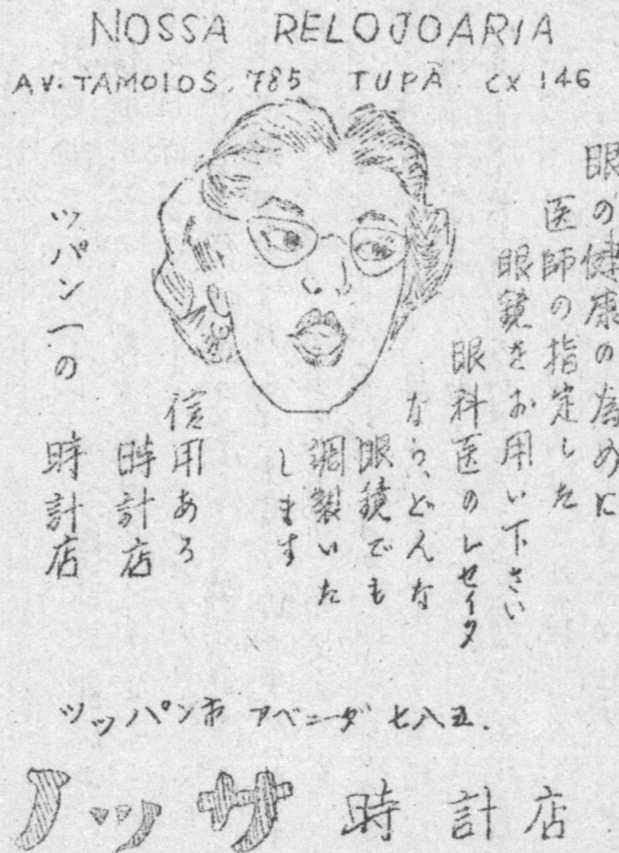 NOSSA RELOJOARIA
AV. TAMOIOS. 785 TUPÃ CX 146
眼の健康の為めに
医師の指定した
眼鏡をお用い下さい
眼科医のレセイタ
なら、どんな
眼鏡でも
調製いた
します
信用ある
時計店
ツパン一の
時計店
ツッパン市 アベニーダ 七八五.
ノッサ 時計店